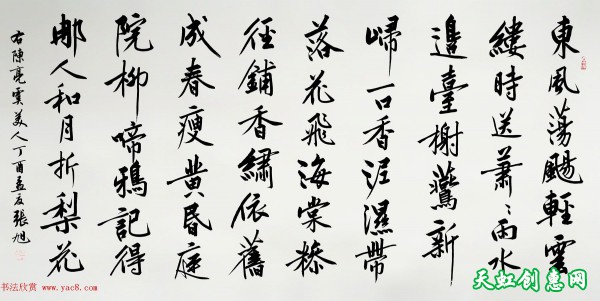 東風蕩颺輕雲
縷時送蕭〻雨水
邊臺榭鷰新
歸一口香泥濕帶
落花飛海棠糝
徑鋪香繡依舊
成春瘦黄昏庭
院柳啼鴉記得
那人和月折梨花
右陳亮虞美人丁酉孟夏張旭
书法欣赏 www.yac8.com
天虹创惠网